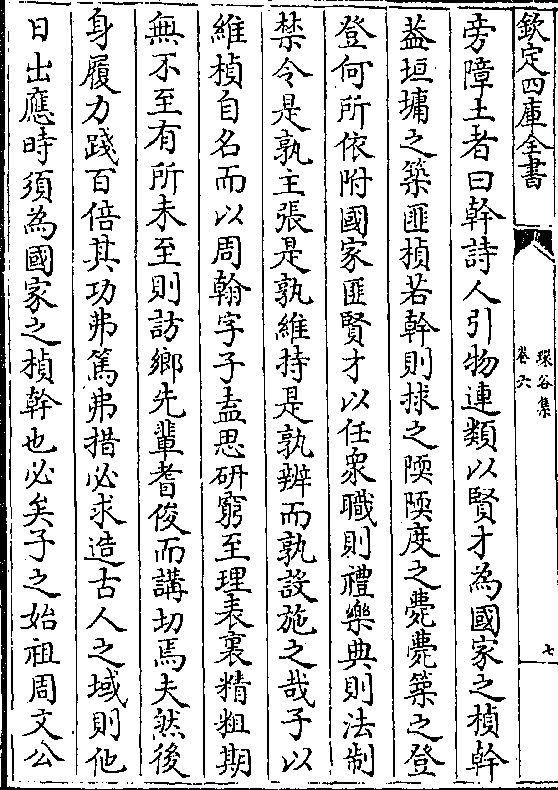 欽定四庫全書
環谷集
卷六
七
旁障土者曰幹詩人引物連類以賢才為國家之楨幹
葢垣墉之築匪楨若幹則捄之陾陾度之薨薨築之登
登何所依附國家匪賢才以任衆職則禮樂典則法制
禁令是孰主張是孰維持是孰辦而孰設施之哉子以
維楨自名而以周翰字子盍思研窮至理表裏精粗期
無不至有所未至則訪鄉先輩耆俊而講切焉夫然後
身履力踐百倍其功弗篤弗措必求造古人之域則他
日出應時須為國家之楨幹也必矣子之始祖周文公